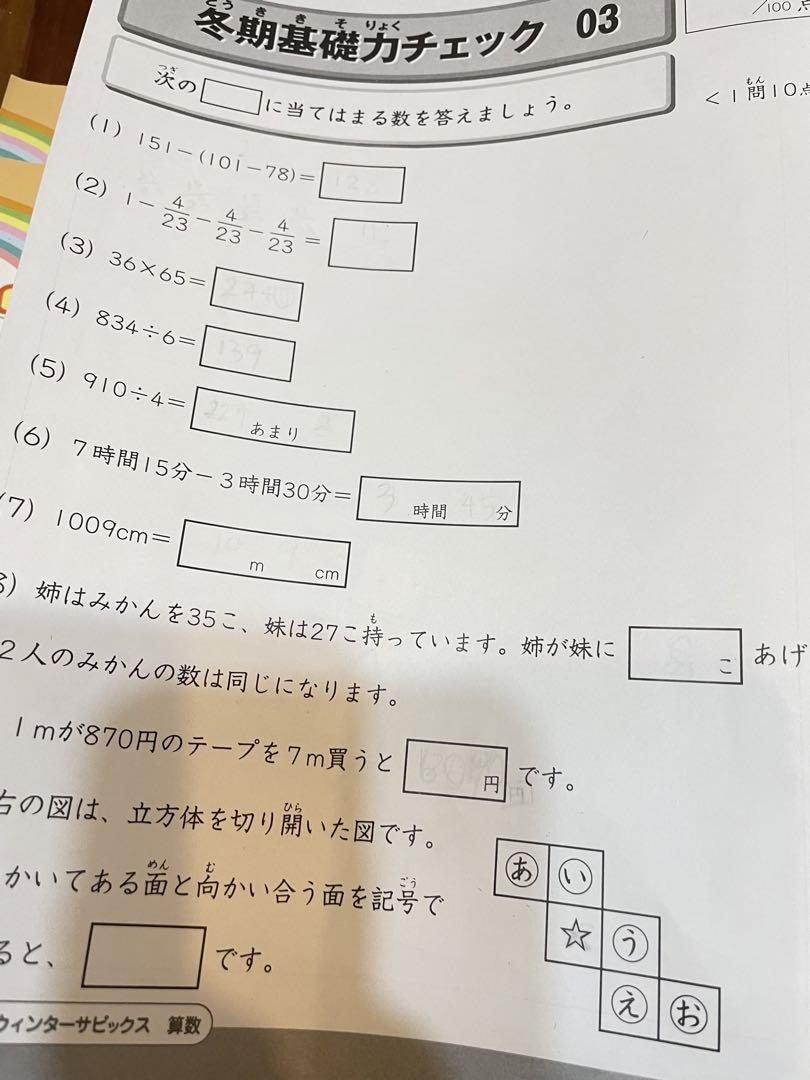 冬期基礎力チェック 03
/100点
次の□に当てはまる数を答えましょう。
<1問10点
(1) 151−(101−78)=
(2) 1−4/23−4/23−4/23=
(3) 36×65=
(4) 834÷6= 139
(5) 910÷4= あまり
(6) 7時間15分−3時間30分= 3時間45分
(7) 1009cm= m cm
姉はみかんを35こ、妹は27こ持っています。姉が妹に こ あげ
2人のみかんの数は同じになります。
1mが870円のテープを7m買うと 円 です。
右の図は、立方体を切り開いた図です。
かいてある面と向かい合う面を記号で
ると、 です。
あ い
☆ う
え お
ウィンターサピックス 算数